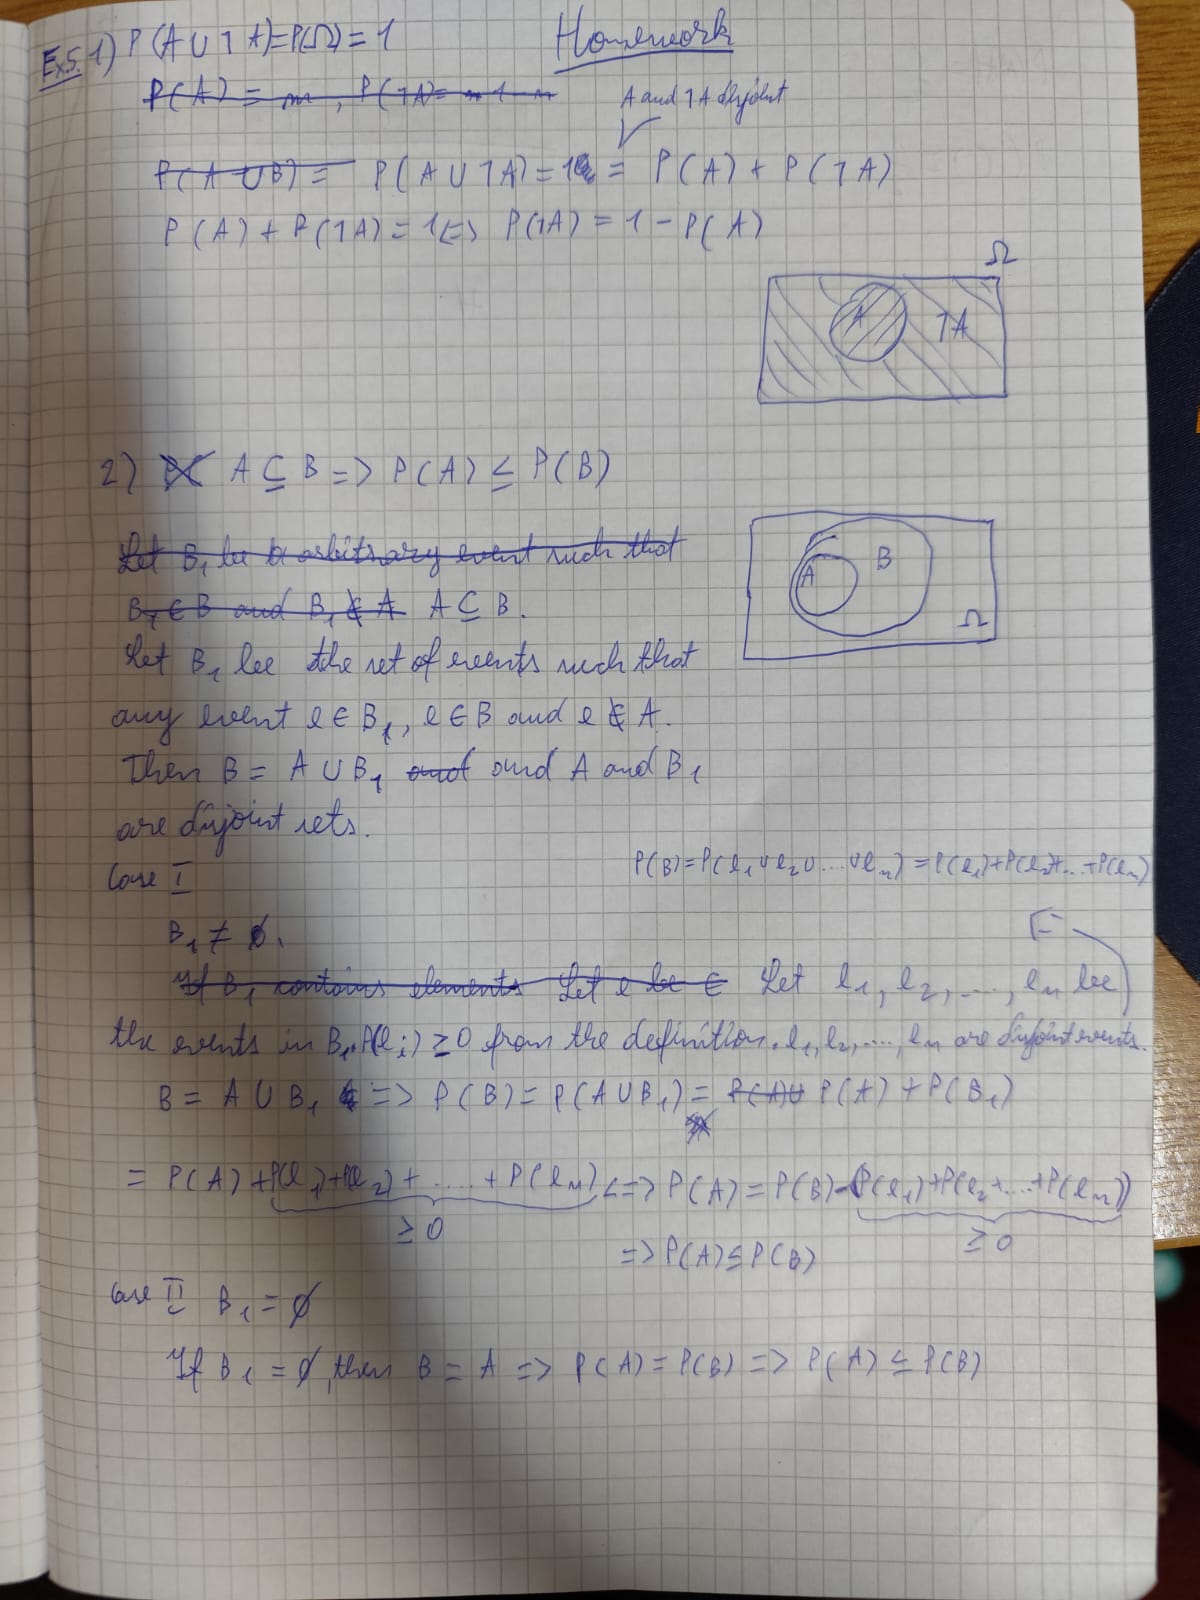 Homework
Ex5. 1) P(A∪⌉A)=P(Ω)=1
P(A) = m, P(⌉A)=
A and ⌉A disjoint
P(A ∪B) = P(A∪⌉A)=1 = P(A)+P(⌉A)
P(A)+P(⌉A)=1<=> P(⌉A)=1-P(A)
Ω
A ⌉A
2) A⊆B=> P(A)≤P(B)
Let B₁ be arbitrary event such that
B₁∈B and B₁∉A A⊆B.
A B
Ω
Let B₁ be the set of events such that
any event e∈B₁, e∈B and e∉A.
Then B= A∪B₁ and and A and B₁
are disjoint sets.
Case I
P(B)=P(e₁∪e₂∪....∪eₙ)=P(e₁)+P(e₂)+...+P(eₙ)
B₁≠∅.
If B₁ contains elements Let e be ∈ Let e₁, e₂, ..., eₙ be
the events in B₁. P(eᵢ)≥0 from the definition. e₁,e₂,...,eₙ are disjoint events.
B= A∪B₁ => P(B)=P(A∪B₁)= P(A)∪ P(A)+P(B₁)
= P(A)+P(e₁)+P(e₂)+.....+P(eₙ) <=> P(A)=P(B)-(P(e₁)+P(e₂+...+P(eₙ))
≥0 ≥0
=>P(A)≤P(B)
Case II B₁=∅
If B₁=∅, then B=A => P(A)=P(B)=> P(A)≤P(B)